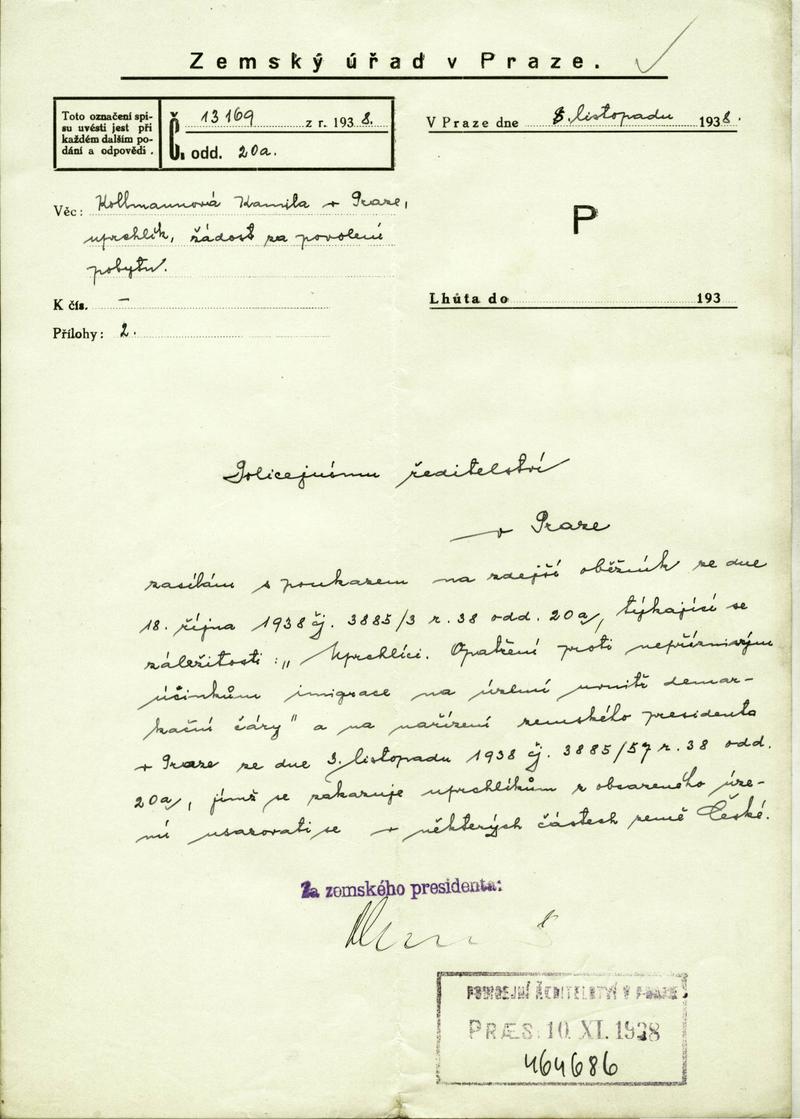 Zemský úřad v Praze.
Toto označení spi-
su uvésti jest při
každém dalším po-
dání a odpovědi.
Č. 13169 z r. 1938.
odd. 20a.
V Praze dne 8. listopadu 1938.
Věc: Kollmannová Kamila v Praze,
uprchlík, žádost za povolení
pobytu.
P
K čís. –
Lhůta do 193
Přílohy: 2.
Policejnímu ředitelství
v Praze
zasílám s poukazem na zdejší oběžník ze dne
18. října 1938 čj. 3885/3 r. 38 odd. 20a, týkající se
záležitosti: „Uprchlíci. Opatření proti nepříznivým
účinkům imigrace na území uvnitř demar-
kační čáry" a na nařízení zemského presidenta
v Praze ze dne 3. listopadu 1938 čj. 3885/57 r. 38 odd.
20a, jímž se zakazuje uprchlíkům z obsazeného úze-
mí usazovati se v některých částech země České.
Za zemského presidenta:
POLICEJNÍ ŘEDITELSTVÍ V PRAZE
PRÆS. 10. XI. 1938
464686